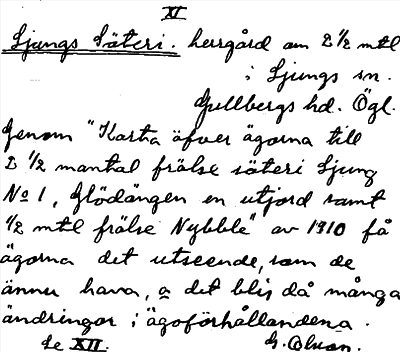 XI
Ljungs Säteri. herrgård om 2 1/2 mtl
i Ljungs sn.
Gullbergs hd. Ögl.
Genom "Karta öfver ägorna till
2 1/2 mantal frälse säteri Ljung
No 1, Glödängen en utjord samt
1/2 mtl frälse Nybble" av 1810 få
ägorna det utseende, som de
ännu hava, o det blir då många
ändringar i ägoförhållandena.
Se XII. G. Olsson.